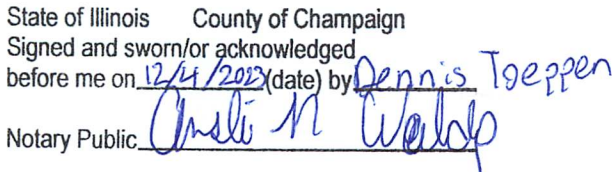 State of Illinois County of Champaign
Signed and sworn/or acknowledged
before me on 12/4/2023 (date) by Dennis Toeppen
Notary Public